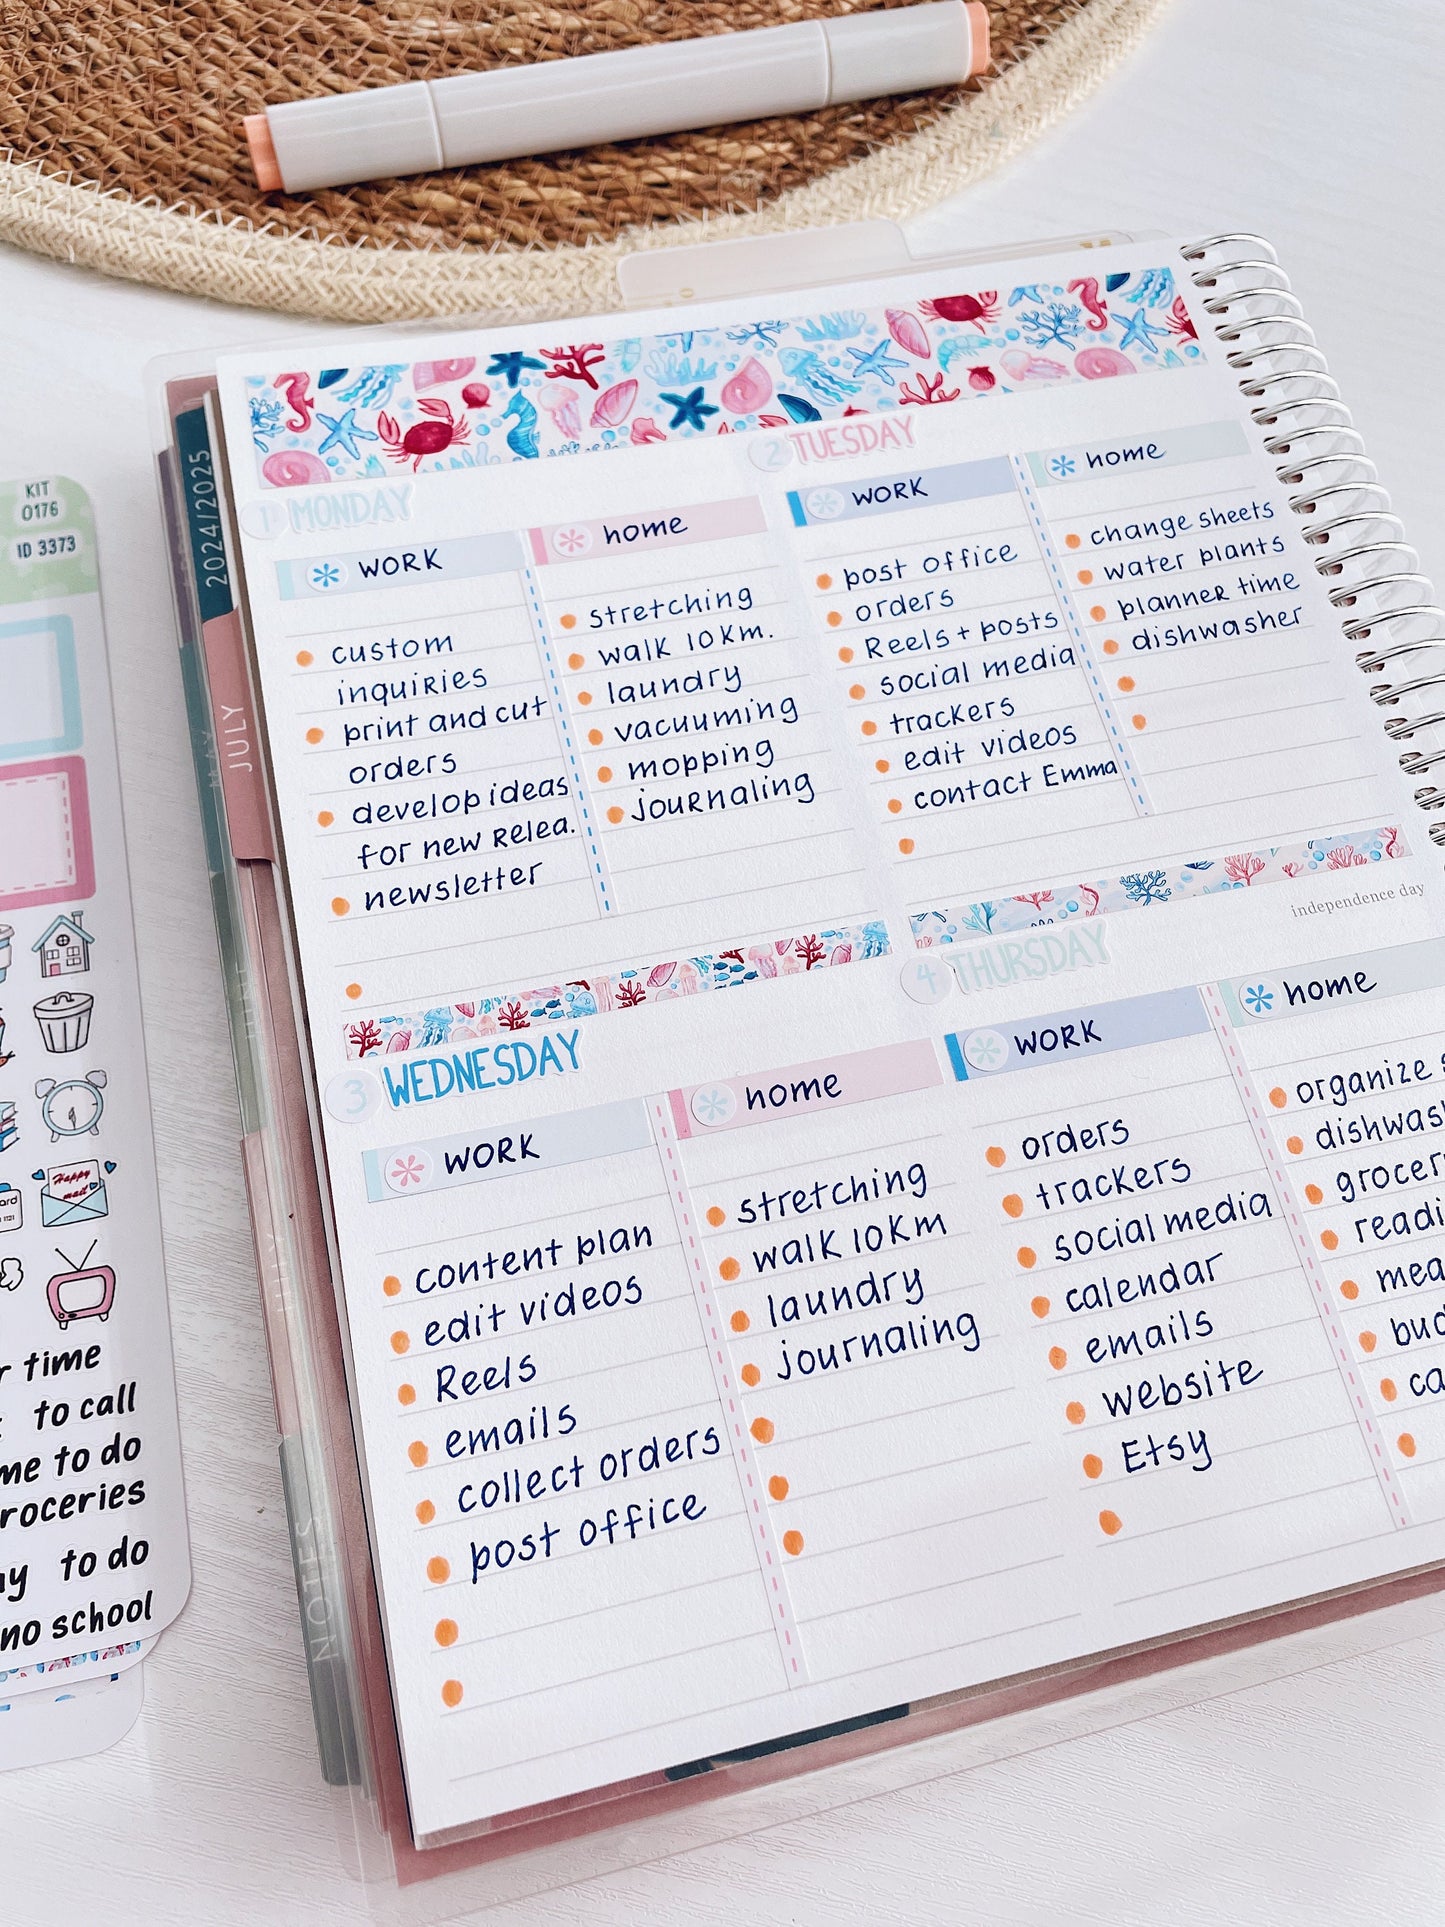 KIT
0176
ID 3373
2024/2025
MAY
JULY
JUNE
NOTES
1 MONDAY
WORK
custom
inquiries
print and cut
orders
develop ideas
for new Relea.
newsletter
home
stretching
walk 10 Km.
laundry
vacuuming
mopping
journaling
2 TUESDAY
WORK
post office
orders
Reels + posts
social media
trackers
edit videos
contact Emma
home
change sheets
water plants
planner time
dishwasher
3 WEDNESDAY
WORK
content plan
edit videos
Reels
emails
collect orders
post office
home
stretching
walk 10 Km
laundry
journaling
independence day
4 THURSDAY
WORK
orders
trackers
social media
calendar
emails
website
Etsy
home
organize
Happy
mail
time
to call
to do
to do
no school